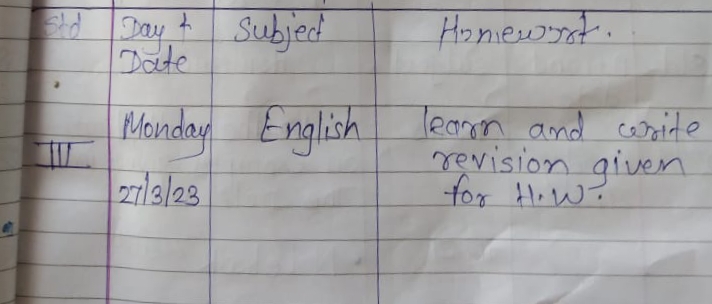 Std Day + Subject Homework.
Date
Monday English learn and write
III revision given
27/3/23 for H.W.